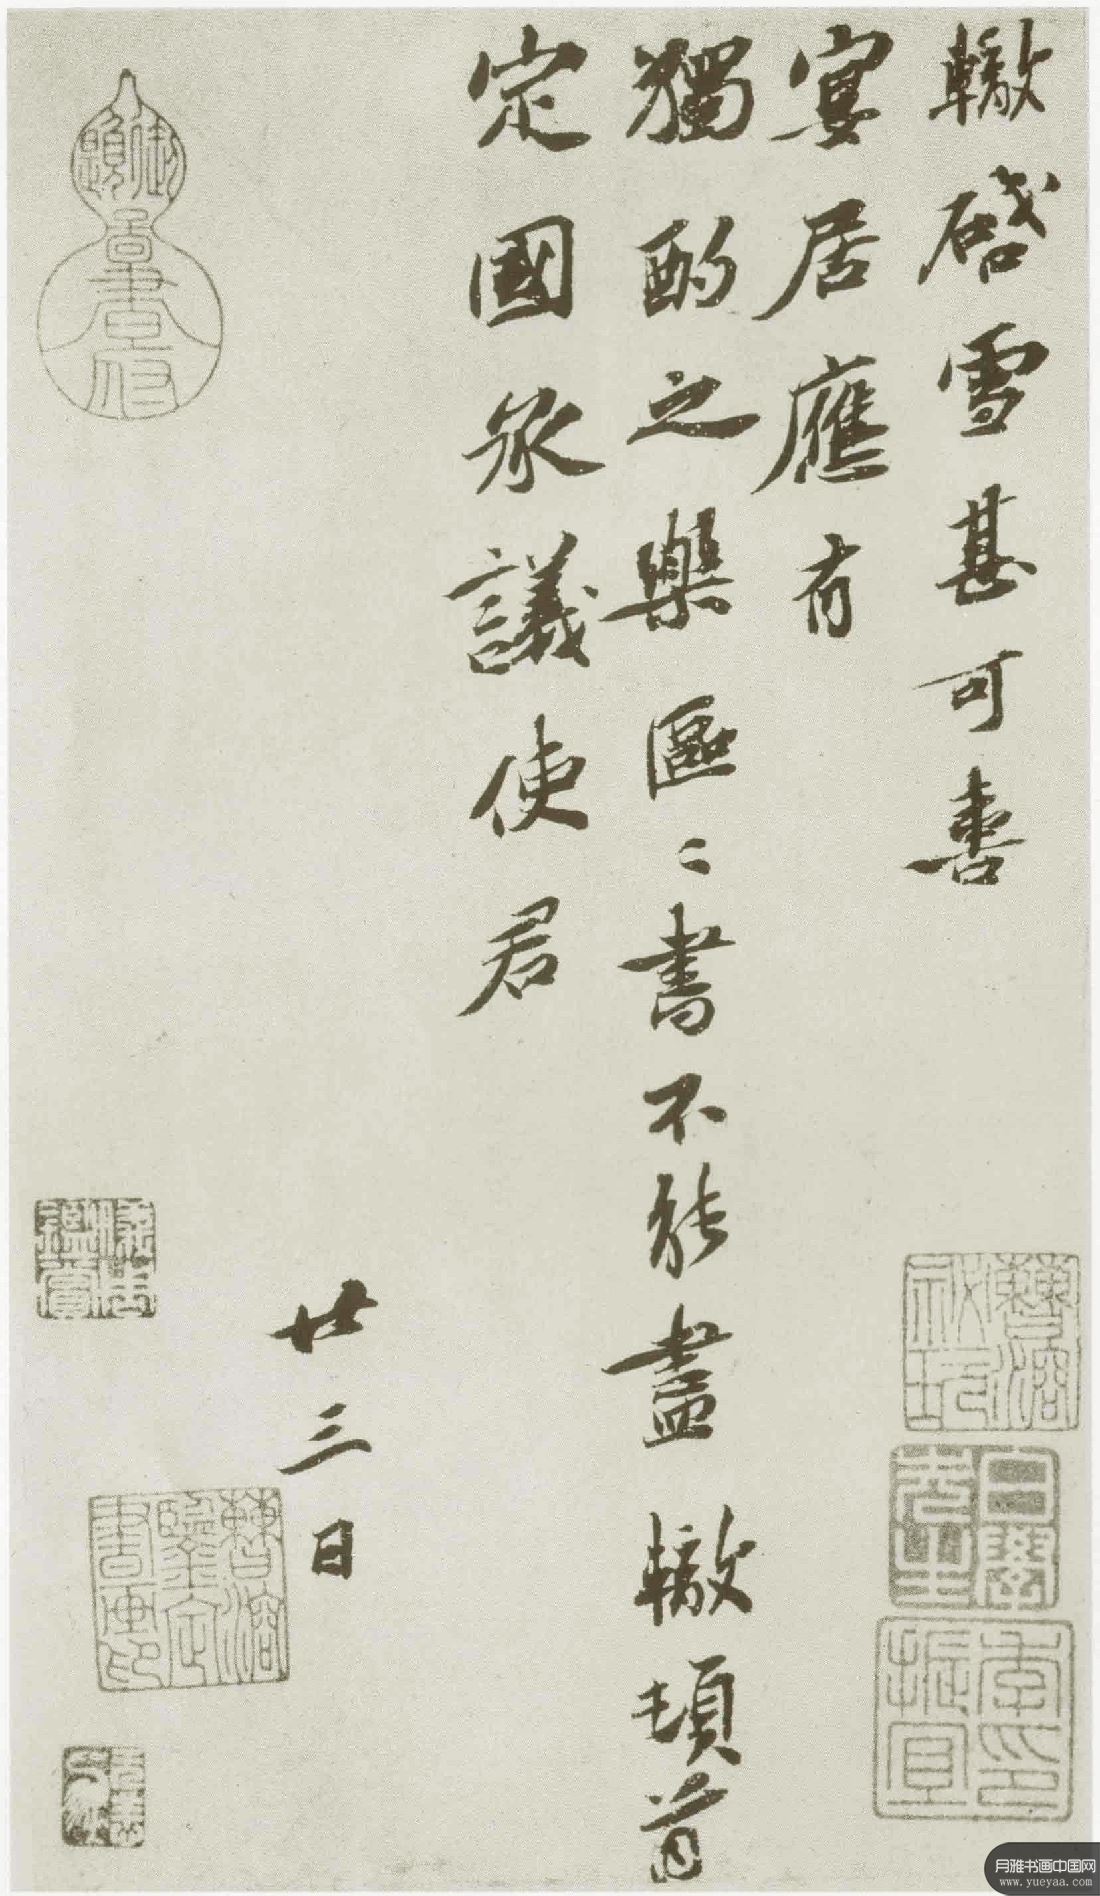 轍啓雪甚可喜
宴居應有
獨酌之樂區〻書不能盡 轍頓首
定國承議使君
廿三日
季印振宜
月雅书画中国网
www.yueyaa.com